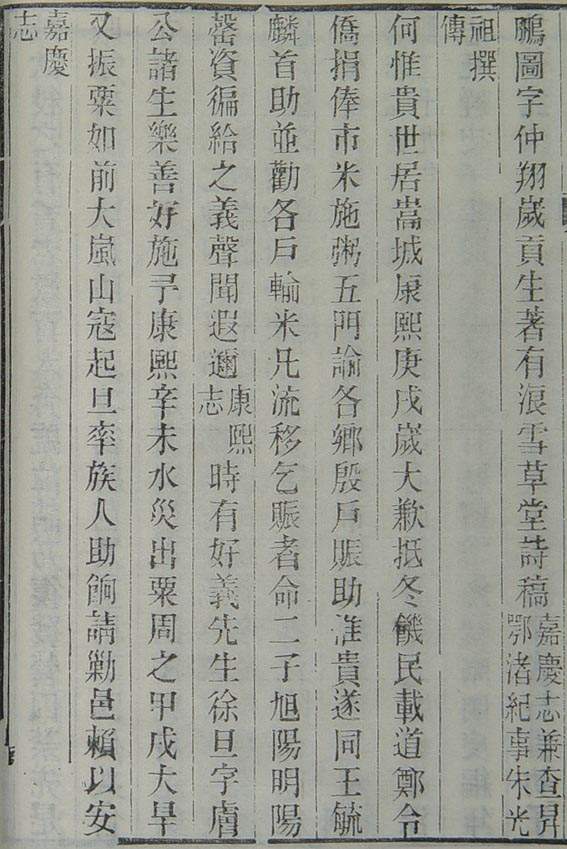 鵬圖字仲翔歲貢生著有浪雪草堂詩稿嘉慶志兼查昇鄂渚紀事朱光
祖撰傳
何惟貴世居嵩城康熙庚戌歲大歉抵冬饑民載道鄭令
僑捐俸市米施粥五門諭各鄉殷戶賑助惟貴遂同王毓
麟首助並勸各戶輸米凡流移乞賑者命二子旭陽明陽
罄資徧給之義聲聞遐邇康熙志時有好義先生徐旦字膚
公諸生樂善好施予康熙辛未水災出粟周之甲戌大旱
又振粟如前大嵐山寇起旦率族人助餉請勦邑賴以安
嘉慶志